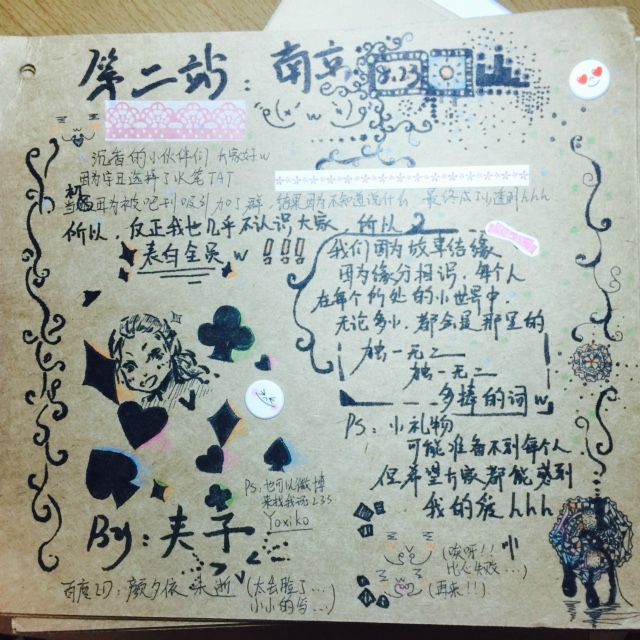 第二站：南京
8.23
沉香的小伙伴们 大家好w
因为字丑选择了水笔TAT
当初因为被吧刊吸引加了群 结果因为不知道说什么 最终成了小透明hhh
所以，反正我也几乎不认识大家 所以
表白全员w !!!
我们因为故事结缘
因为缘分相识，每个人
在每个所处的小世界中
无论多小，都会是那里的
独一无二
独一无二
多棒的词w
PS：小礼物
可能准备不到每个人
但希望大家都能感到
我的爱hhh
PS：也可以微博
来找我玩233
Yoxiko
By：夫子
百度ID：颜夕依
(太会脸了…
小小的写…)
(哎呀!!
(再来!!)